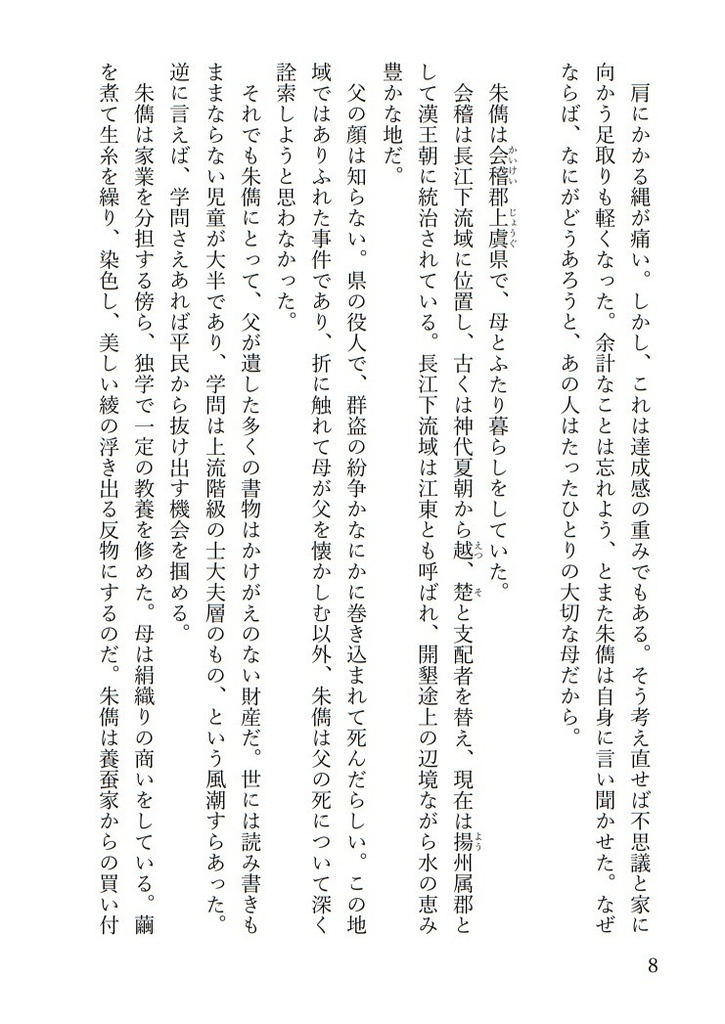 肩にかかる縄が痛い。しかし、これは達成感の重みでもある。そう考え直せば不思議と家に
向かう足取りも軽くなった。余計なことは忘れよう、とまた朱儁は自身に言い聞かせた。なぜ
ならば、なにがどうあろうと、あの人はたったひとりの大切な母だから。
朱儁は会稽郡上虞県で、母とふたり暮らしをしていた。
かいけい
じょうぐ
会稽は長江下流域に位置し、古くは神代夏朝から越、楚と支配者を替え、現在は揚州属郡と
えつ
そ
よう
して漢王朝に統治されている。長江下流域は江東とも呼ばれ、開墾途上の辺境ながら水の恵み
豊かな地だ。
父の顔は知らない。県の役人で、群盗の紛争かなにかに巻き込まれて死んだらしい。この地
域ではありふれた事件であり、折に触れて母が父を懐かしむ以外、朱儁は父の死について深く
詮索しようと思わなかった。
それでも朱儁にとって、父が遺した多くの書物はかけがえのない財産だ。世には読み書きも
ままならない児童が大半であり、学問は上流階級の士大夫層のもの、という風潮すらあった。
逆に言えば、学問さえあれば平民から抜け出す機会を掴める。
朱儁は家業を分担する傍ら、独学で一定の教養を修めた。母は絹織りの商いをしている。繭
を煮て生糸を繰り、染色し、美しい綾の浮き出る反物にするのだ。朱儁は養蚕家からの買い付
8